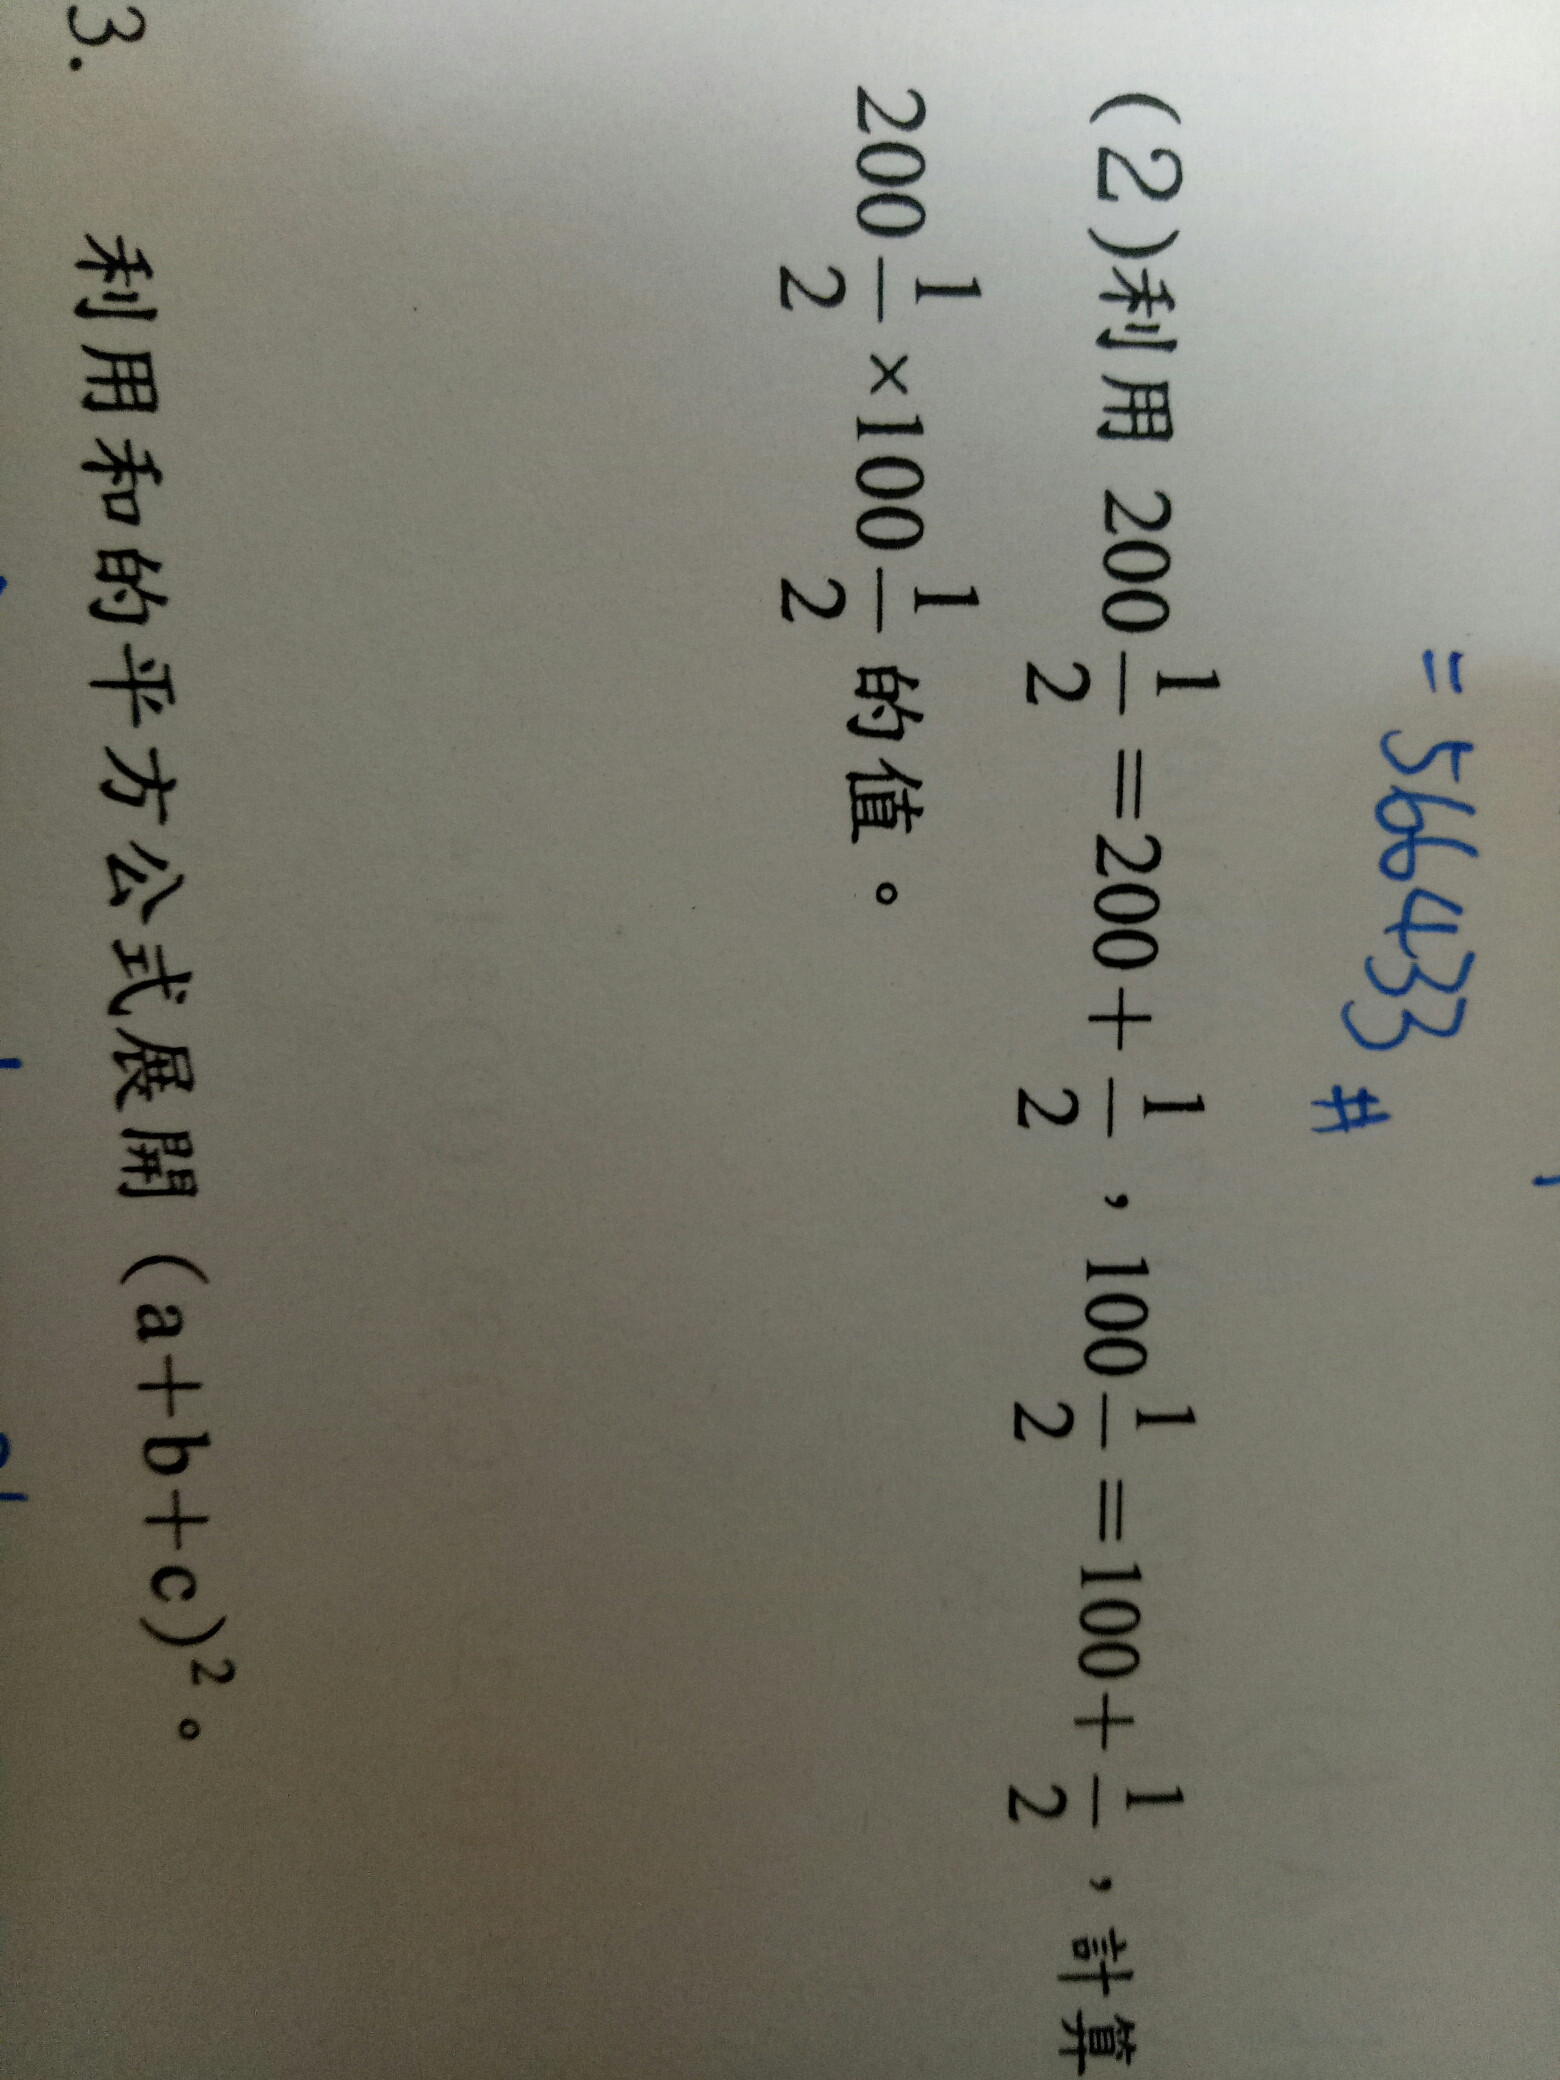 =566433 #
(2)利用 200\frac{1}{2}=200+\frac{1}{2}，100\frac{1}{2}=100+\frac{1}{2}，計算
200\frac{1}{2}×100\frac{1}{2}的值。
3. 利用和的平方公式展開(a+b+c)²。